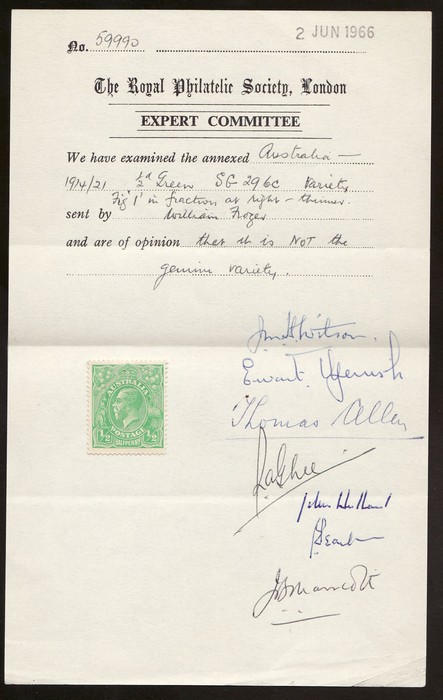 No. 59990
2 JUN 1966
The Royal Philatelic Society, London
EXPERT COMMITTEE
We have examined the annexed Australia —
1914/21 ½d Green SG 29bc Variety
Fig '1' in fraction at right – thinner.
sent by William Frazer
and are of opinion that it is NOT the
genuine variety.
John Wilson.
Thomas Allen
AUSTRALIA
POSTAGE
½ HALFPENNY ½
John Holland